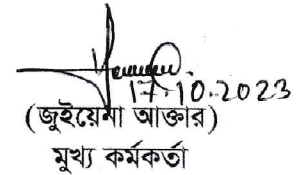 17.10.2023
(জুইয়েনা আক্তার)
মুখ্য কর্মকর্তা